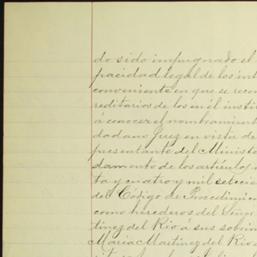 do sido impugnado el
pacidad legal de los int
conveniente en que se reco
reditarios de los en él insti
á conocer el nombramient
dadano Juez en vista de
presentante del Ministe
damento de los artículos
ta y cuatro y mil
del Código de Procedimie
como herederos del
tinez del Rio á sus sobri
María Martinez del Rio